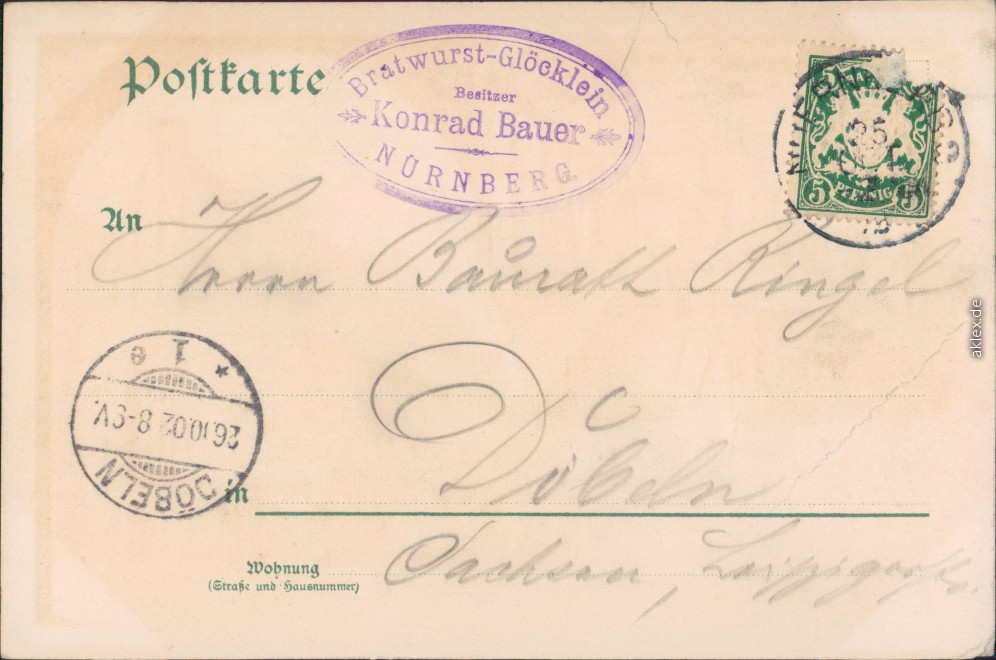 Postkarte
Bratwurst-Glöcklein
Besitzer
Konrad Bauer
NÜRNBERG
5 PFENNIG 5
25
An
Herrn Baurath Ringel
* 1 e
26.10.02 8-9V.
DÖBELN
in Döbeln
Wohnung
(Straße und Hausnummer)
Sachsen, Leipzigerstr.
aklex.de